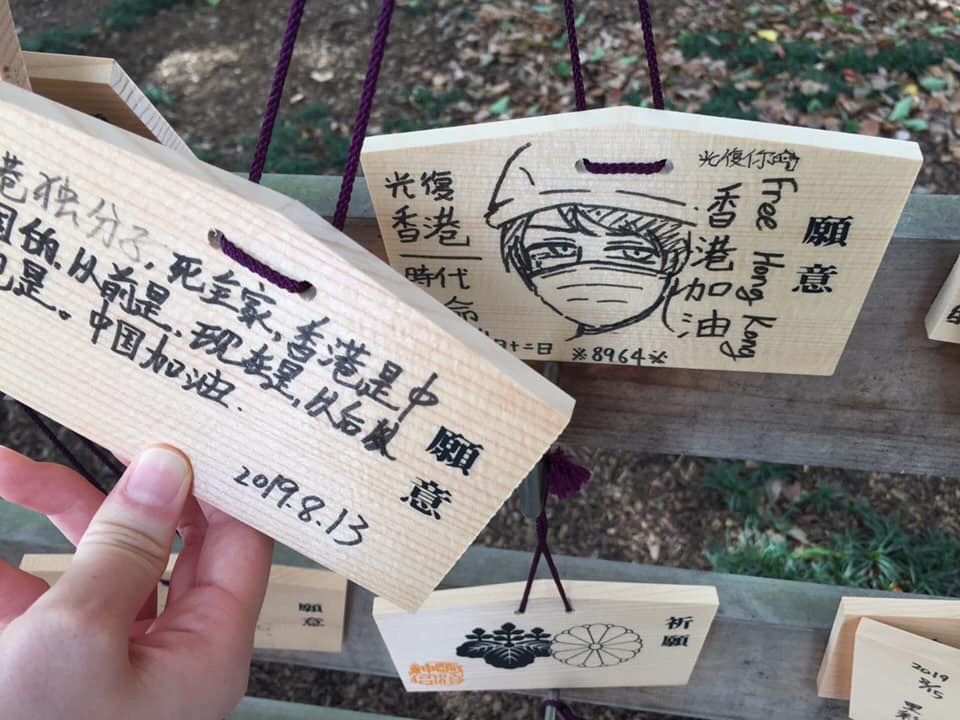 港独分子, 死全家, 香港是中
国的. 从前是, 现在是, 以后
是。中国加油.
2019.8.13
願意
光復
香港
時代
命
月十二日 ※8964※
光復你
香港加油
Free Hong Kong
願意
願意
祈願
2019
8/15